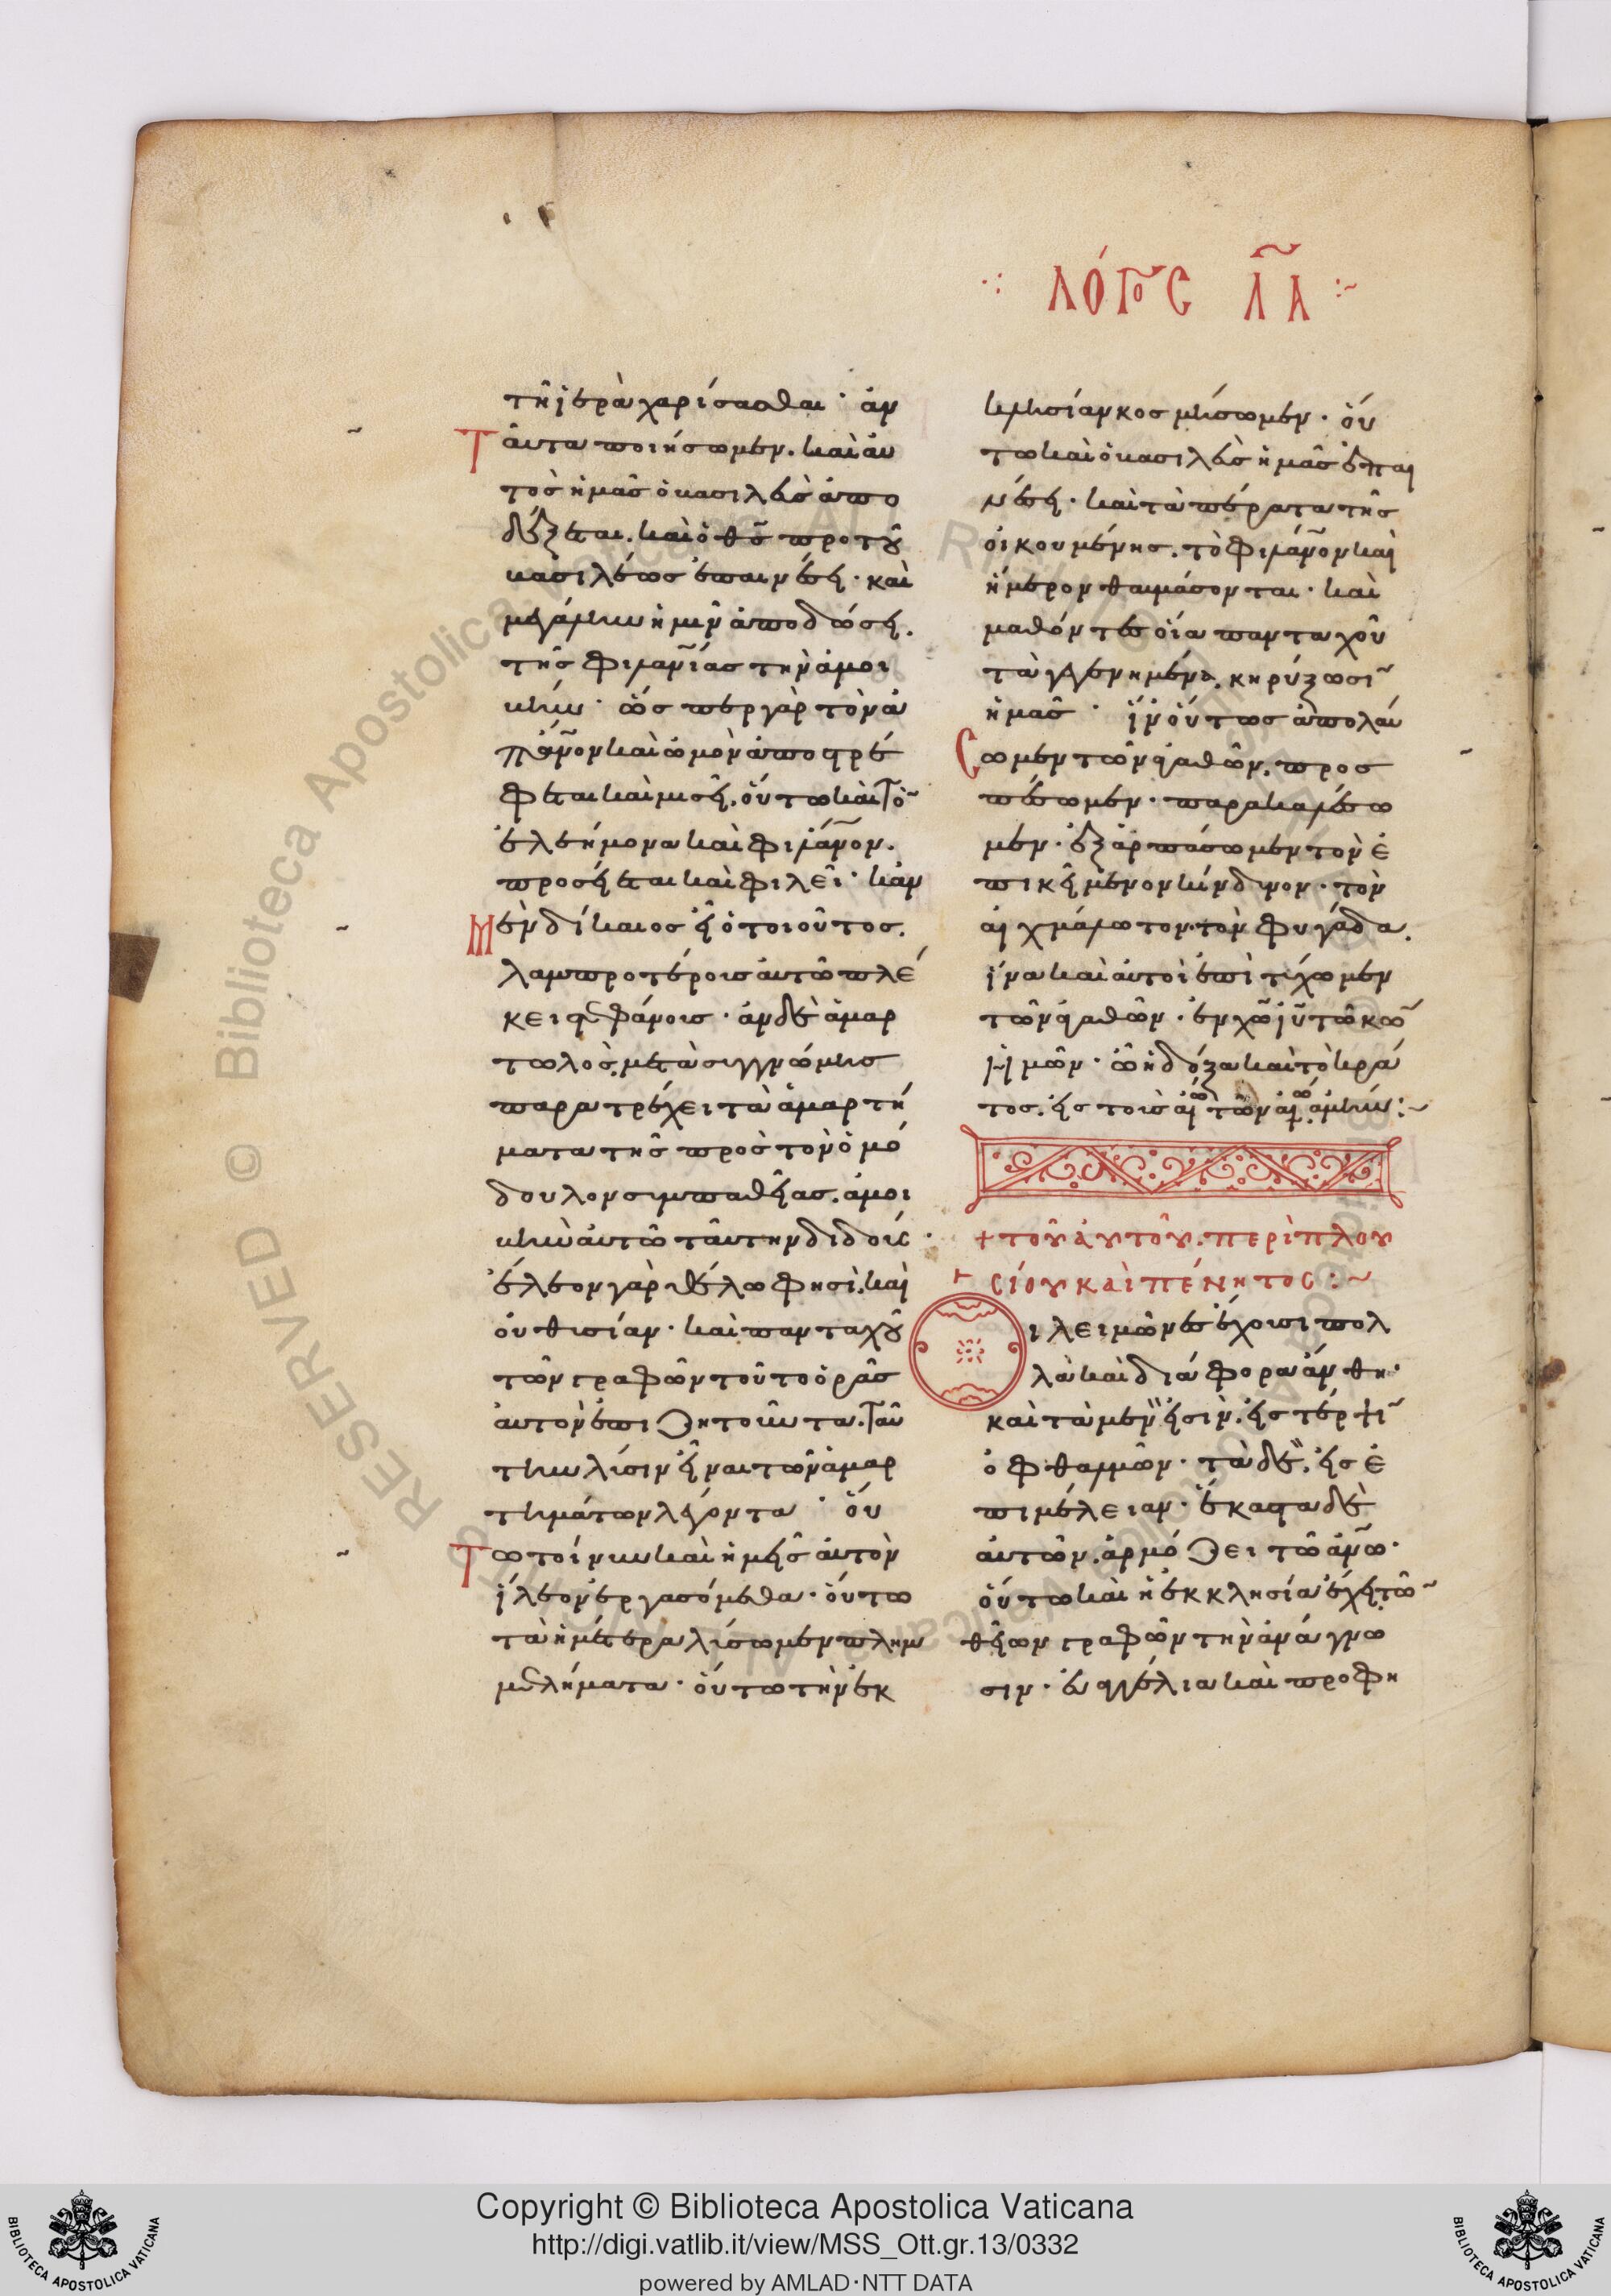 ΛΌΓΟΣ ΛΑ
τῆ ἱερὰ χαρίσασθαι · ἂν
Ταῦτα ποιήσωμεν. καὶ αὐ
τὸς ἡμᾶς ὁ βασιλεὺς ἀπο
δέξεται. καὶ ὁ θς̅ πρὸ τοῦ
βασιλέως ἐπαινέσει · καὶ
μεγάλην ἡμῖν ἀποδώσει.
τῆς φιλανι̅ας τὴν ἀμοι
βήν · ὥσπερ γὰρ τὸν ἀ
πάνο̅ν καὶ ὠμὸν ἀποστρέ
φεται καὶ μισεῖ. οὕτω καὶ τὸ̅
ἐλεήμονα καὶ φιλάνο̅ν.
προσίεται καὶ φιλεῖ · κἂν
Μὲν δίκαιος εἶ ὁ τοιοῦτος.
λαμπροτέροις αὐτῶ πλέ
κει στεφάνοις · ἂν δὲ ἁμαρ
τωλὸς, μετὰ συγγνώμης
παρατρέχει τὰ ἁμαρτή
ματα τῆς πρὸς τὸν ὁμό
δουλον συμπαθείας. ἀμοι
βὴν αὐτῶ ταύτην διδούς ·
ἔλεον γὰρ θέλω φησὶ. καὶ
οὐ θυσίαν · καὶ πανταχοῦ
τῶν γραφῶν τοῦτο ὁρᾶς
αὐτὸν ἐπιζητοῦντα. ταύ
την λύσιν εἶναι τῶν ἁμαρ
τημάτων λέγοντα · οὕ
Τω τοίνυν καὶ ἡμεῖς αὐτὸν
ἵλεον ἐργασόμεθα · οὕτω
τὰ ἡμέτερα λύσωμεν πλημ
μελήματα · οὕτω τὴν ἐκ
κλησίαν κοσμήσωμεν · οὕ
τω καὶ ὁ βασιλεὺς ἡμᾶς ἐπαι
νέσει · καὶ τὰ πέρατα τῆς
οἰκουμένης. τὸ φιλάνο̅ν καὶ
ἥμερον θαυμάσονται · καὶ
μαθόντες οἱ ἁπανταχοῦ
τὰ γεγενημένα, κηρύξωσι̅
ἡμᾶς · ἵν οὕτως ἀπολαύ
Σωμεν τῶν ἀγαθῶν. προσ
πέσωμεν · παρακαλέσω
μεν · ἐξαρπάσωμεν τὸν ἐ
πικείμενον κίνδυνον · τὸν
αἰχμάλωτον. τὸν φυγάδα.
ἵνα καὶ αὐτοὶ ἐπιτύχωμεν
τῶν ἀγαθῶν · ἐν χω̅ ιυ̅ τῶ κω̅
ἡμῶν · ὧ ἡ δόξα καὶ τὸ κρά
τος. εἰς τοὺς αἰῶ τῶν αἰώ. ἀμήν :~
+ τοῦ αὐτοῦ. περὶ πλου
σίου καὶ πένητος :~
Οἱ λειμῶνες ἔχουσι πολ
λὰ καὶ διάφορα ἄνθη ·
καὶ τὰ μὲν εἰσὶν. εἰς τέρψι̅
ὀφθαλμῶν · τὰ δὲ, εἰς ἐ
πιμέλειαν · ἕκαστα δὲ
αὐτῶν. ἁρμόζει τῶ ἀνω̅ ·
οὕτω καὶ ἡ ἐκκλησία ἔχει τῶ̅
θείων γραφῶν τὴν ἀνάγνω
σιν · εὐαγγέλια καὶ προφη
Copyright © Biblioteca Apostolica Vaticana
http://digi.vatlib.it/view/MSS_Ott.gr.13/0332
powered by AMLAD·NTT DATA